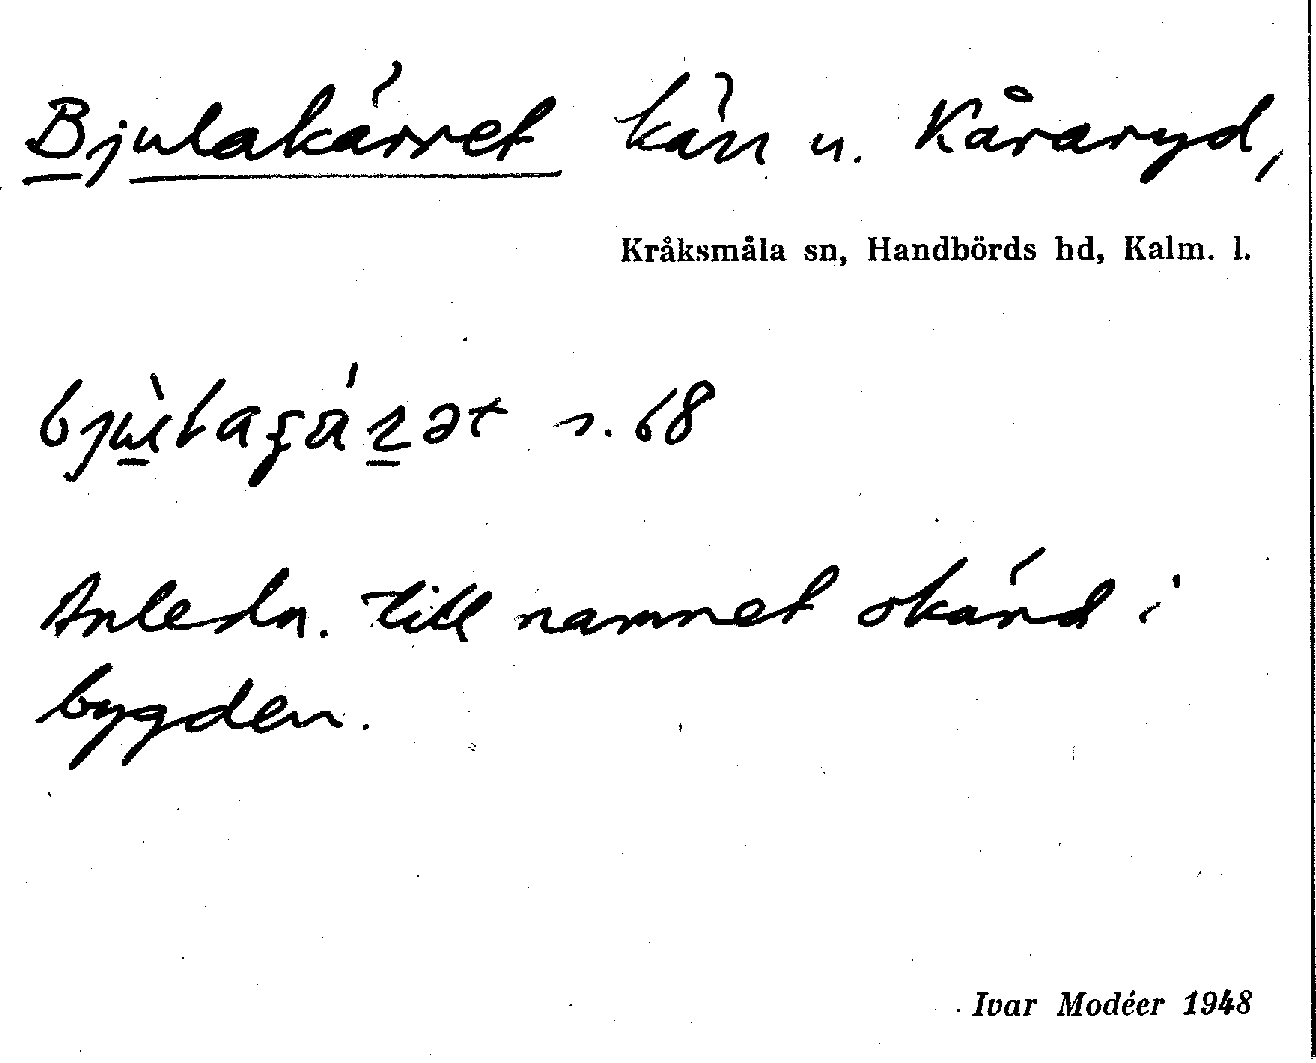 Bjulakärret kärr u. Kåraryd,
Kråksmåla sn, Handbörds hd, Kalm. l.
s. 68
Anledn. till namnet okänd i
bygden.
Ivar Modéer 1948